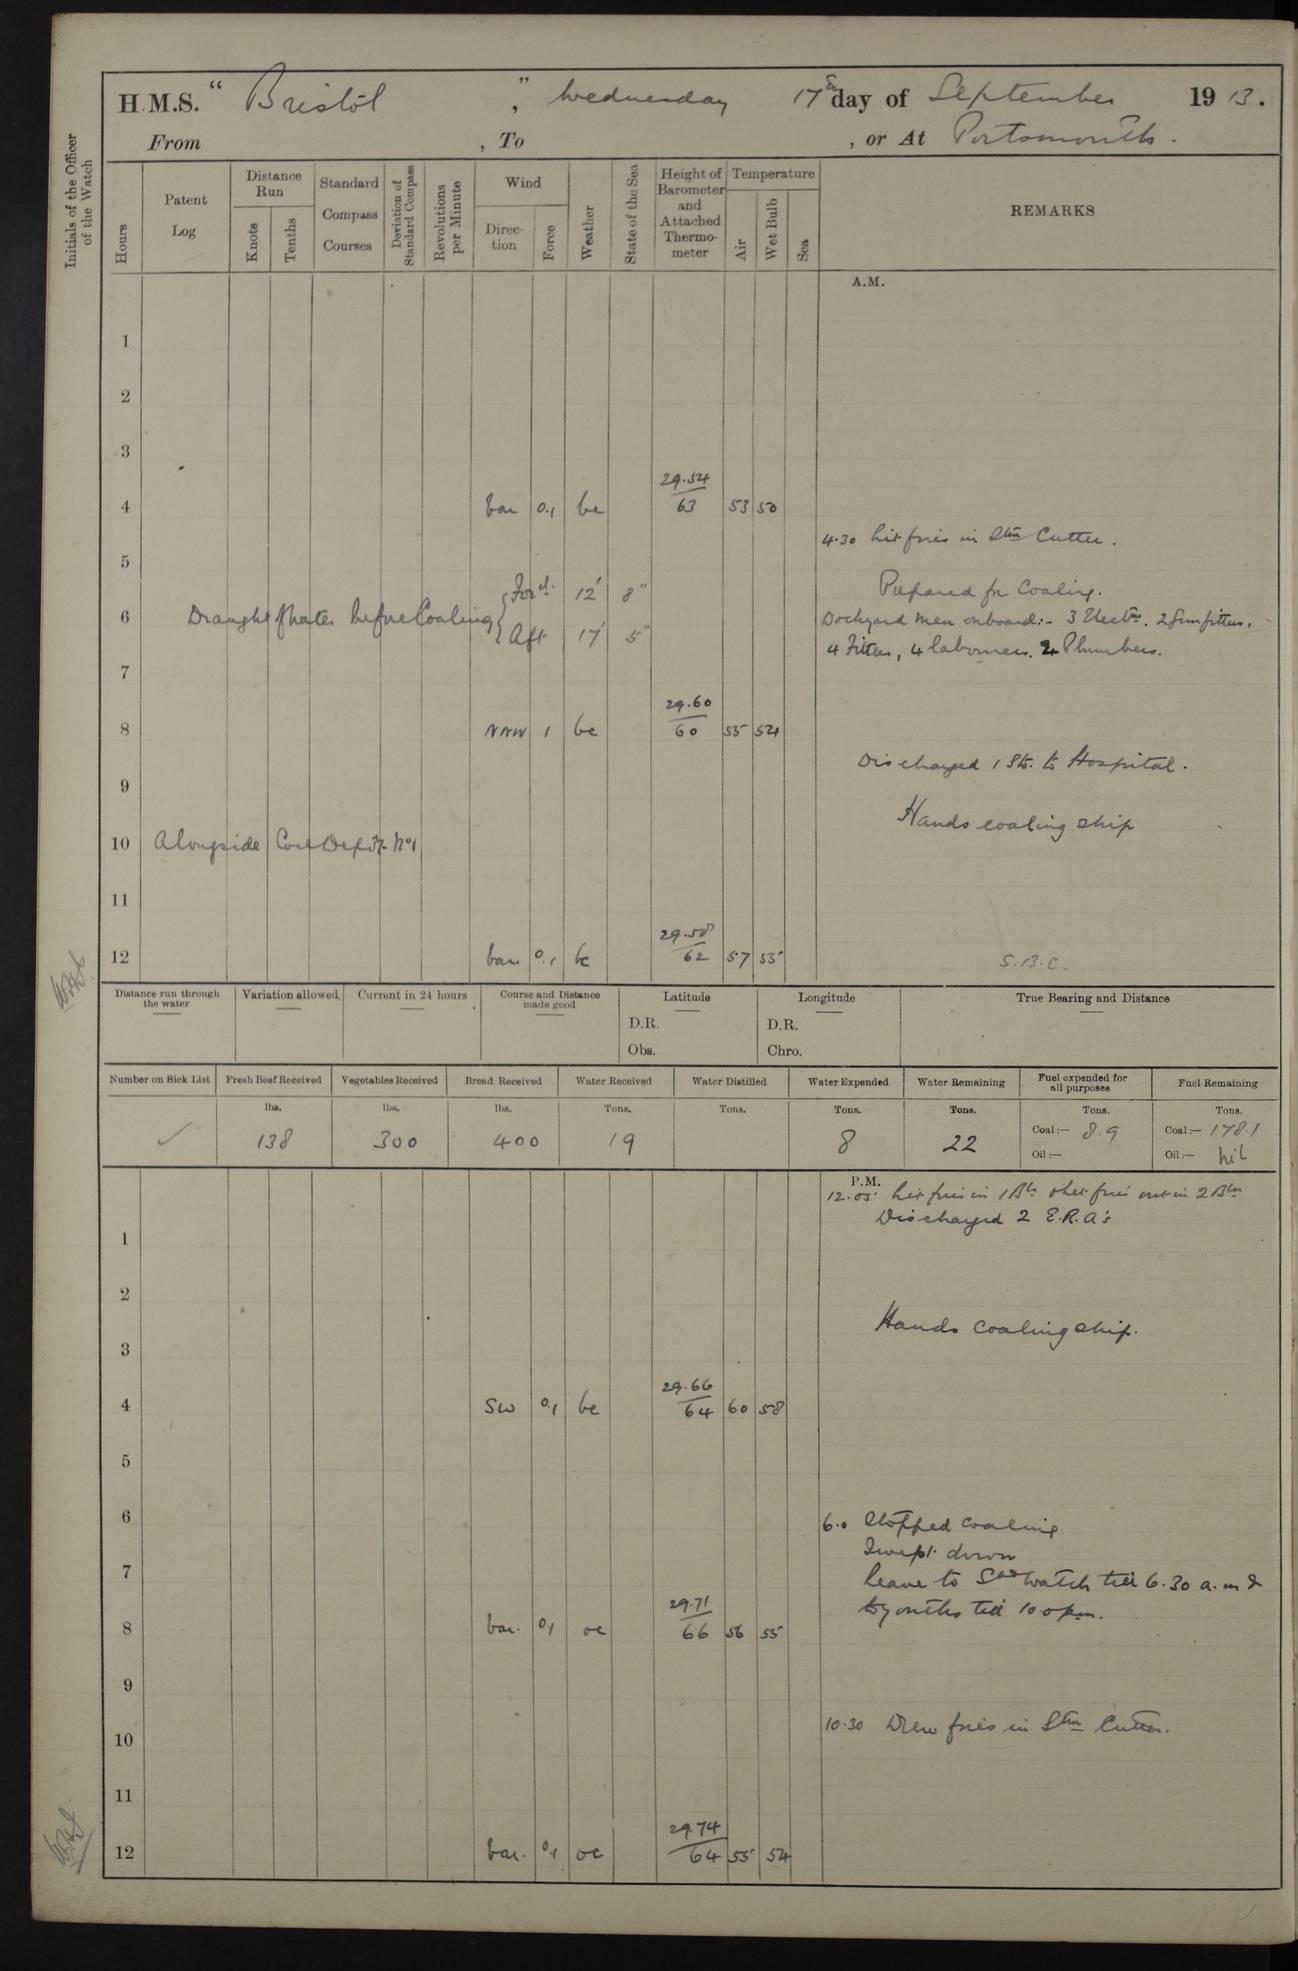 H.M.S. "Bristol", Wednesday 17th day of September 1913.
From , To , or At Portsmouth.
Initials of the Officer of the Watch
Hours
Patent Log
Distance Run
Knots
Tenths
Standard Compass Courses
Deviation of Standard Compass
Revolutions per Minute
Wind
Direc-tion
Force
Weather
State of the Sea
Height of Barometer and Attached Thermo-meter
Temperature
Air
Wet Bulb
Sea
REMARKS
A.M.
1
2
3
4 var 0.1 bc 29.54 63 53 50
4.30 lit fires in Stm Cutter.
5
Prepared for Coaling.
6 Draught of Water before Coaling { Ford. 12' 8"
Aft 17' 5"
Dockyard men onboard:- 3 Electrs. 2 Gunfitters,
4 Fitters, 4 labourers. 2 Plumbers.
7
8 NNW 1 bc 29.60 60 55 54
Discharged 1 Sto. to Hospital.
9
Hands coaling ship
10 Alongside Coal Depôt No1
11
12 var. 0.1 bc 29.58 62 57 55
S.B.C.
Distance run through the water
Variation allowed.
Current in 24 hours
Course and Distance made good
Latitude
D.R.
Obs.
Longitude
D.R.
Chro.
True Bearing and Distance
Number on Sick List
Fresh Beef Received
Vegetables Received
Bread Received
Water Received
Water Distilled
Water Expended
Water Remaining
Fuel expended for all purposes
Fuel Remaining
lbs. lbs. lbs. Tons. Tons. Tons. Tons. Tons. Tons.
✓ 138 300 400 19 8 22 Coal:— 8.9 Coal:— 178.1
Oil:— Oil:— nil
P.M.
12.05 lit fires in 1 Blr & let fires out in 2 Blrs
Discharged 2 E.R.A's
1
2
Hands coaling ship.
3
4 SW 0.1 bc 29.66 64 60 58
5
6
6.0 Stopped coaling
Swept down
7
Leave to Stbd Watch till 6.30 a.m &
to youths till 10.0 p.m.
8 var. 0.1 oc 29.71 66 56 55
9
10.30 Drew fires in Stm Cutter.
10
11
12 var. 0.1 oc 29.74 64 55 54